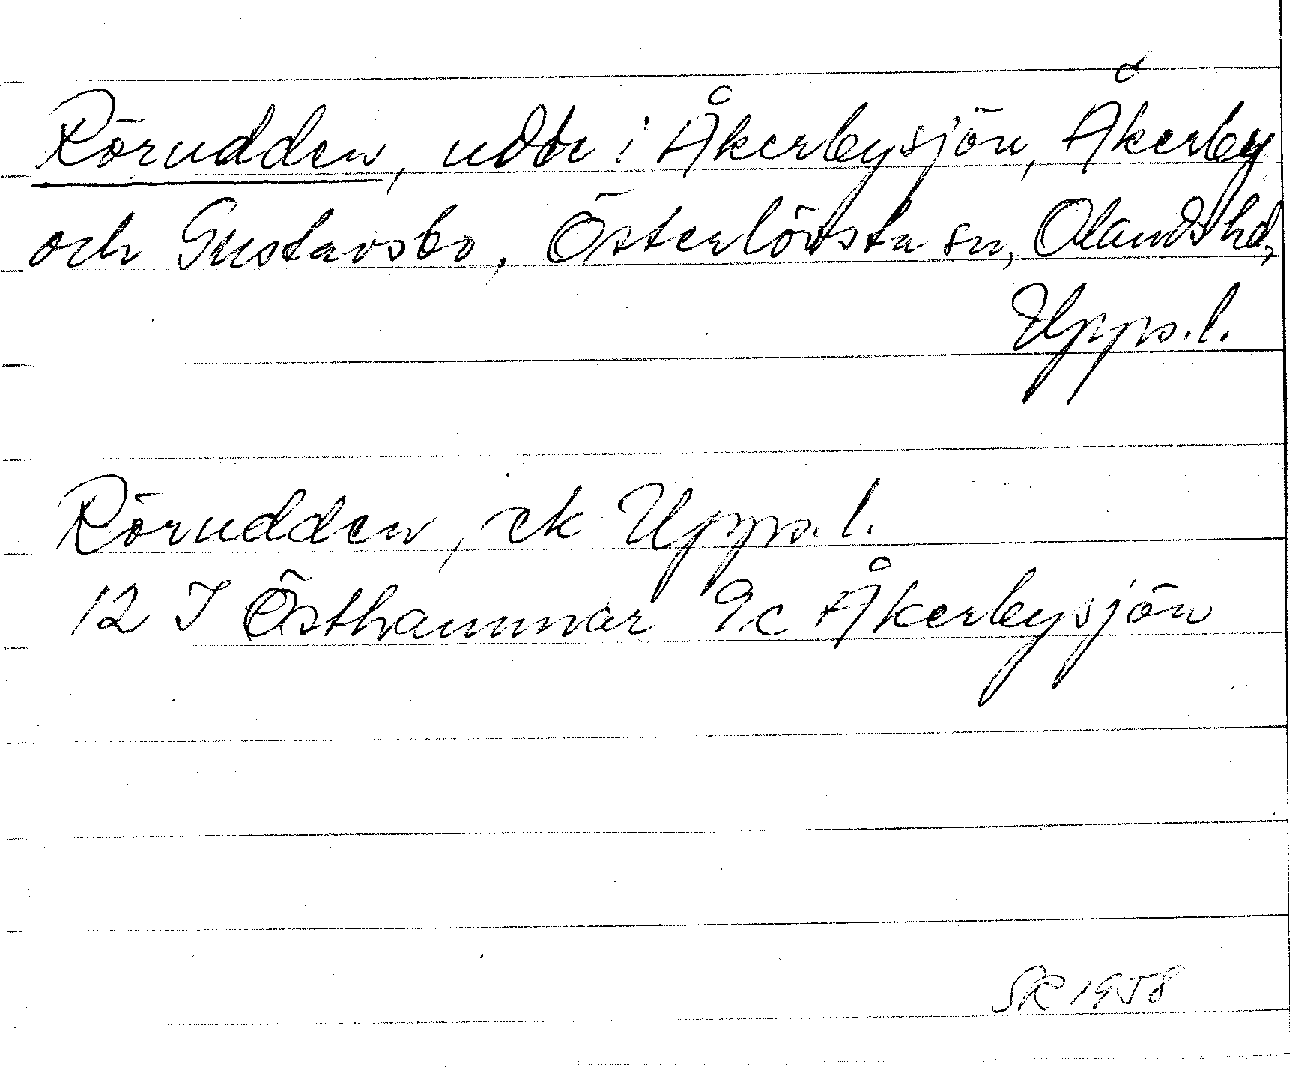 Rörudden, uddr i Åkerbysjön, Åkerby
och Gustavsbo, Österlövsta sn, Olands hd,
Upps.l.
Rörudden, ek Upps. l.
12 I Östhammar 9c Åkerbysjön
SK 1958